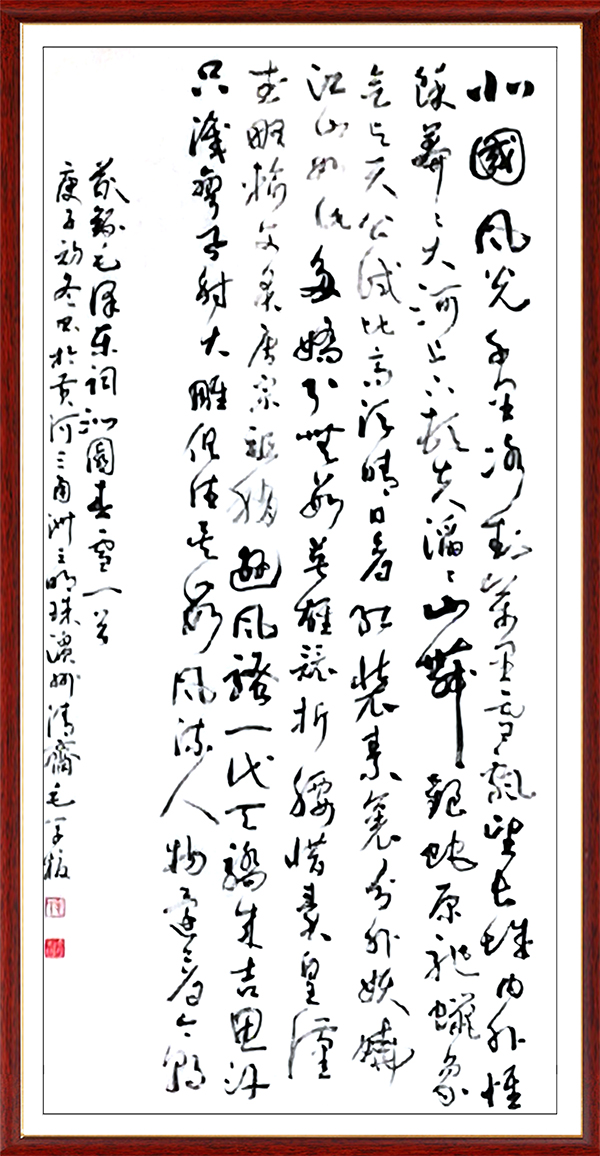 北國風光千里冰封萬里雪飄望長城内外惟
餘莽〻大河上下頓失滔〻山舞銀蛇原馳蠟象
欲与天公試比高須晴日看紅裝素裹分外妖嬈
江山如此多嬌引無數英雄競折腰惜秦皇漢
武略輸文采唐宗祖稍遜風騷一代天驕成吉思汗
只識彎弓射大雕俱往矣數風流人物還看今朝
敬錄毛澤東詞沁園春雪一首
庚子初冬書於黄河三角洲之明珠濱州清齋毛